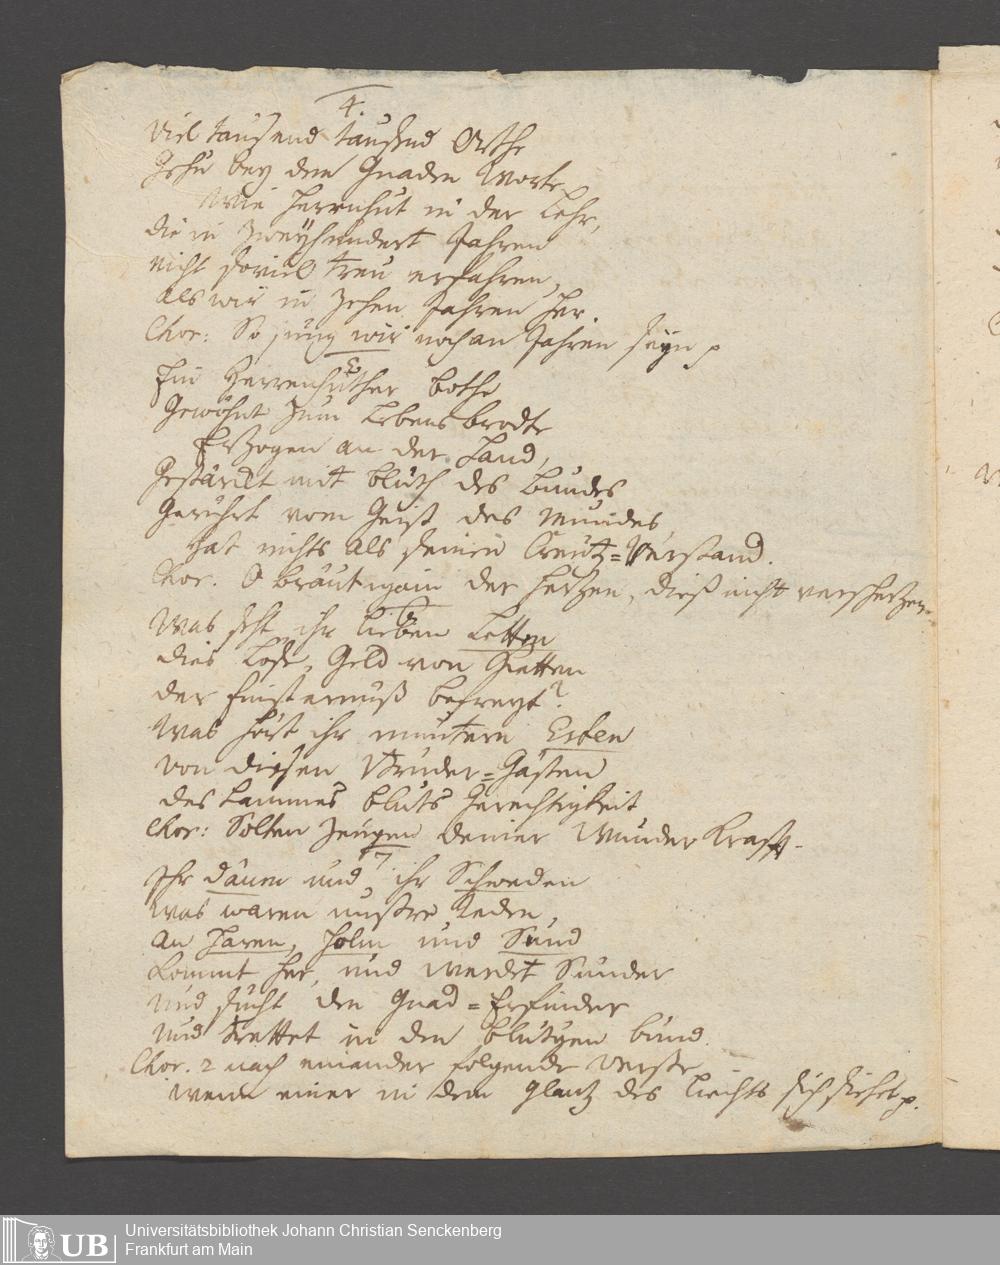 4.
Viel tausend tausend Orthe
Jesu bey dem Gnaden Worte
Wie Herrnhut in der Lehr,
die in Zweyhundert Jahren
nicht soviel treu erfahren,
als wir in zehen Jahren her.
Chor: So jung wir noch an Jahren seyn p
5
Ein Herrenhuther bothe
Gewöhnt zum Lebens brodte
Erzogen an der Hand,
Gestärckt mit bluth des bundes
Gerührt vom Geist des Mundes
hat nichts als seinen Creutz=Verstand.
Chor. O bräutigam der Hertzen, dieß nicht verschertzen
6
Was seht ihr lieben Letten
dies Löse Geld von Ketten
der finsternuß befreyt?
Was hört ihr muntern Esten
von diesen Brüder=Gästen
des Lammes bluts Gerechtigkeit
Chor: Solten Zeugen deiner Wunder Krafft.
7
Ihr dänen und ihr Schweden
was waren unsere Reden,
an Haven, Holm und Sund
kommt her, und werdet Sünder
und sucht den Gnad=Erfinder
und trettet in den blutgen bund.
Chor. 2 nach einander folgende Verße
wenn einer in dem Glantz des Liechts sich siehet p.
Universitätsbibliothek Johann Christian Senckenberg
Frankfurt am Main
UB